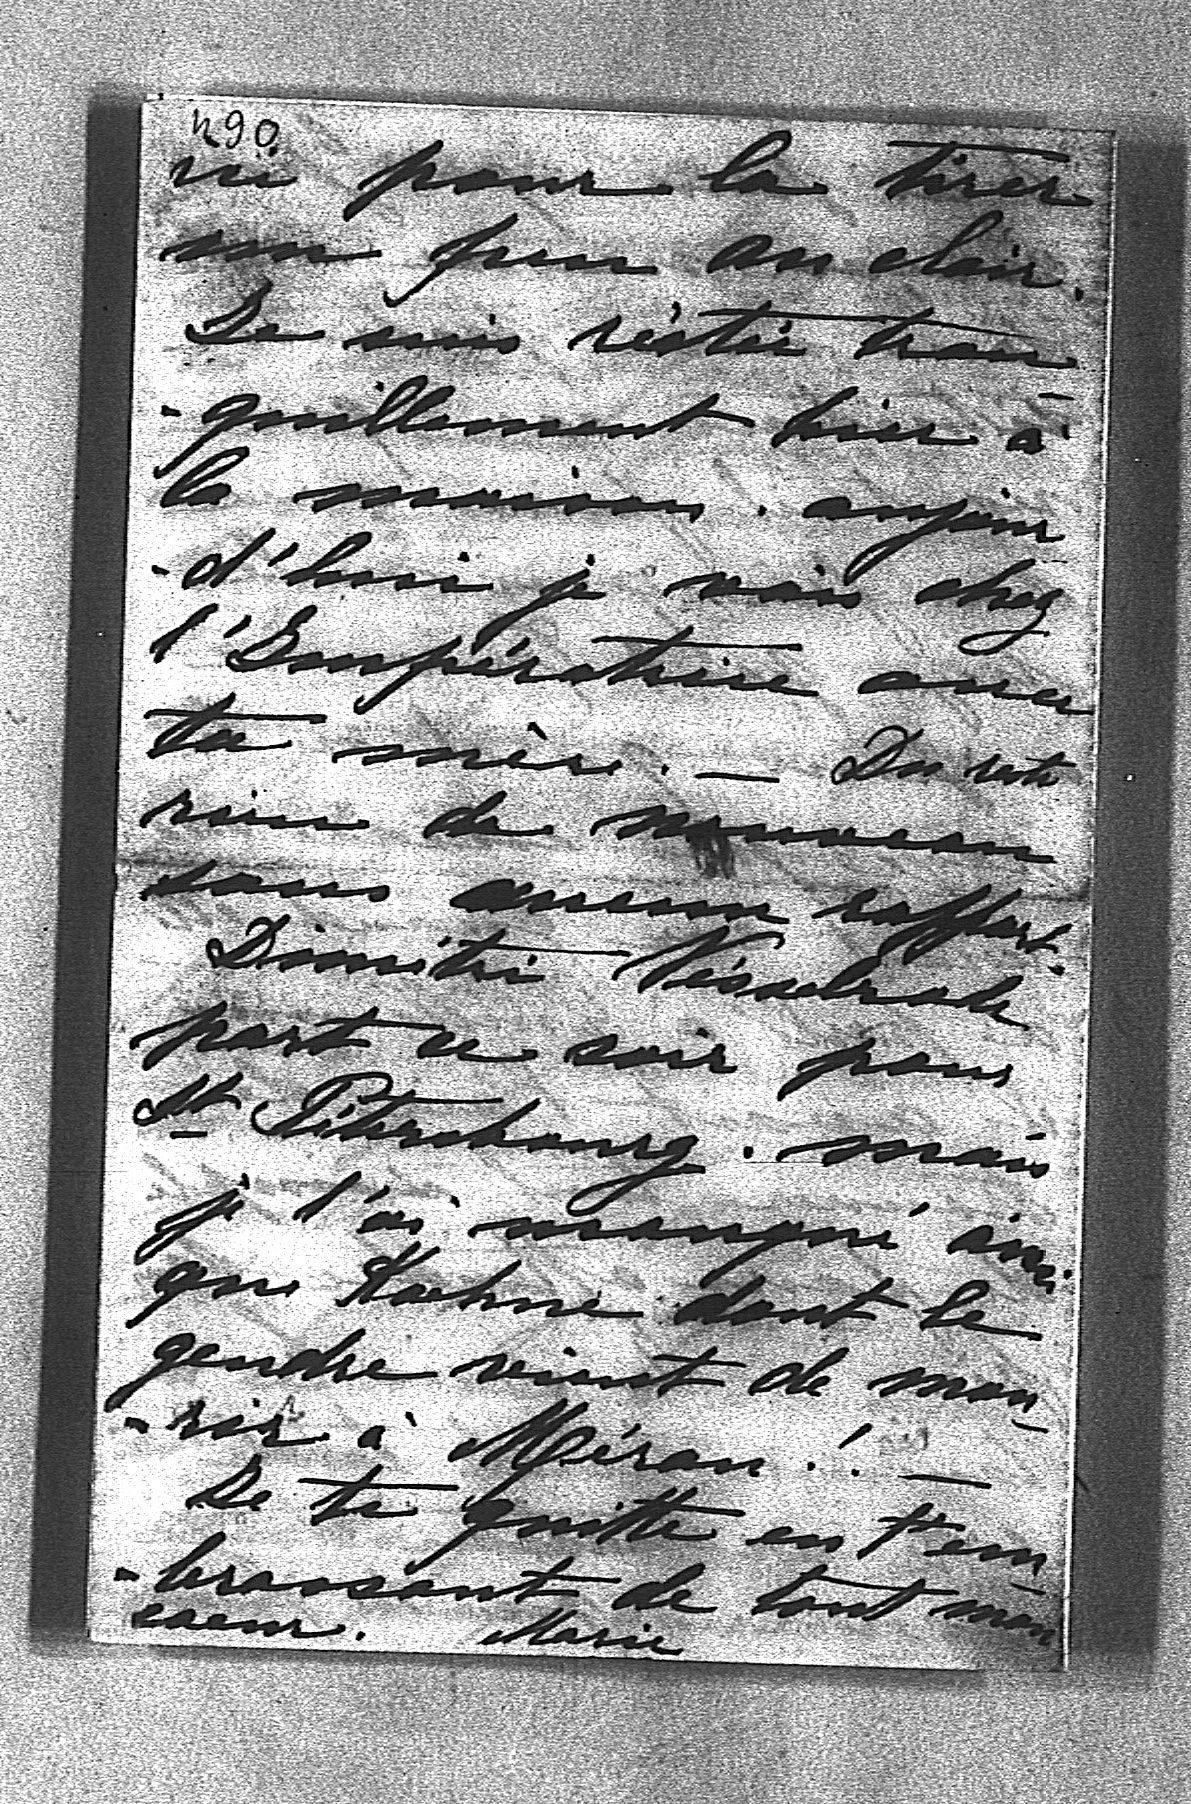 490
rié pour la tirer
un peu au clair.
Je suis réstée tran
-quillement hier à
la maison. aujour
-d'hui je vais chez
l'Impératrice avec
ta mère. — Du reste
rien de nouveau
sous aucun rapport.
Dimitri Nésselrode
part ce soir pour
St Pétersbourg. mais
je l'ai manqué ainsi
que Koehne dont le
gendre vient de mou
-rir à Méran! —
Je te quitte en t'em
-brassant de tout mon
coeur. Marie